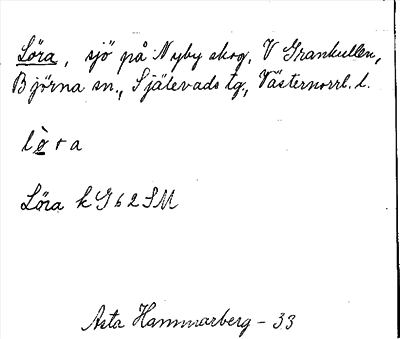 Löra, sjö på Nyby skog, V Grankullen,
Björna sn., Själevads tg., Västernorrl. l.
lòra
Löra kG62SM
Asta Hammarberg - 33